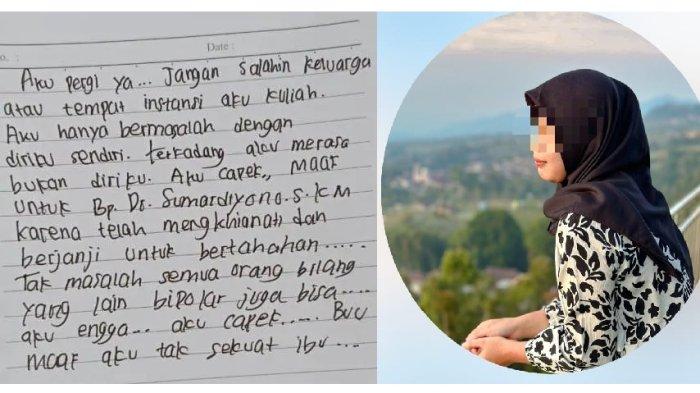 Date :
Aku pergi ya... Jangan salahin keluarga
atau tempat instansi aku kuliah.
Aku hanya bermasalah dengan
diriku sendiri. terkadang aku merasa
bukan diriku. Aku capek,, maaf
untuk Bp. Ds. Sumardiyono.S.KM
karena telah mengkhianati dan
berjanji untuk bertahahan.....
Tak masalah semua orang bilang
yang lain bipolar juga bisa....
aku engga... aku capek..... Buu
maaf aku tak sekuat ibu....